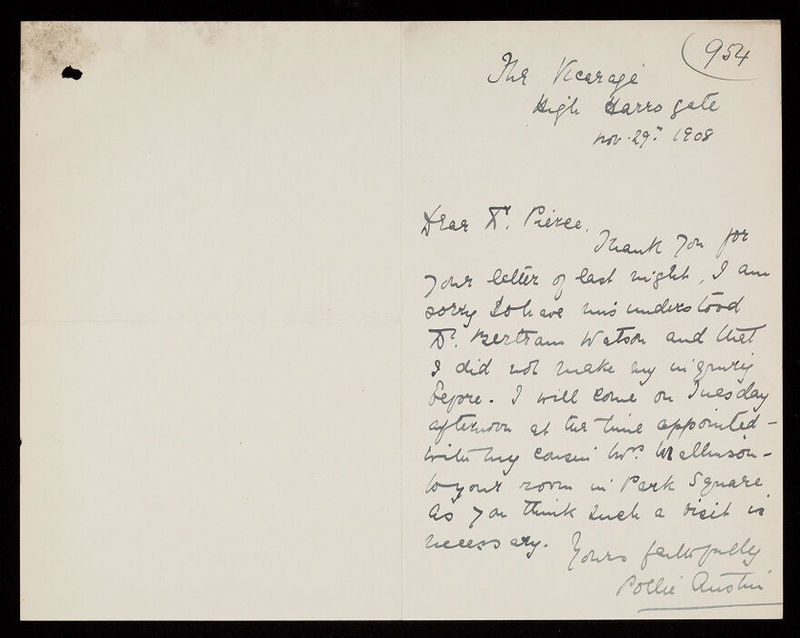 954
The Vicarage
High Harrogate
Nov. 29th 1908
Dear Dr. Pierce,
Thank you for
your letter of last night, I am
sorry to have misunderstood
Dr. Bertram Watson and that
I did not make my inquiry
before. I will come on Tuesday
afternoon at the time appointed -
with my cousin Mrs. Mallinson -
to your room in Park Square
as you think such a visit is
necessary.
Yours faithfully
Pollie Austin